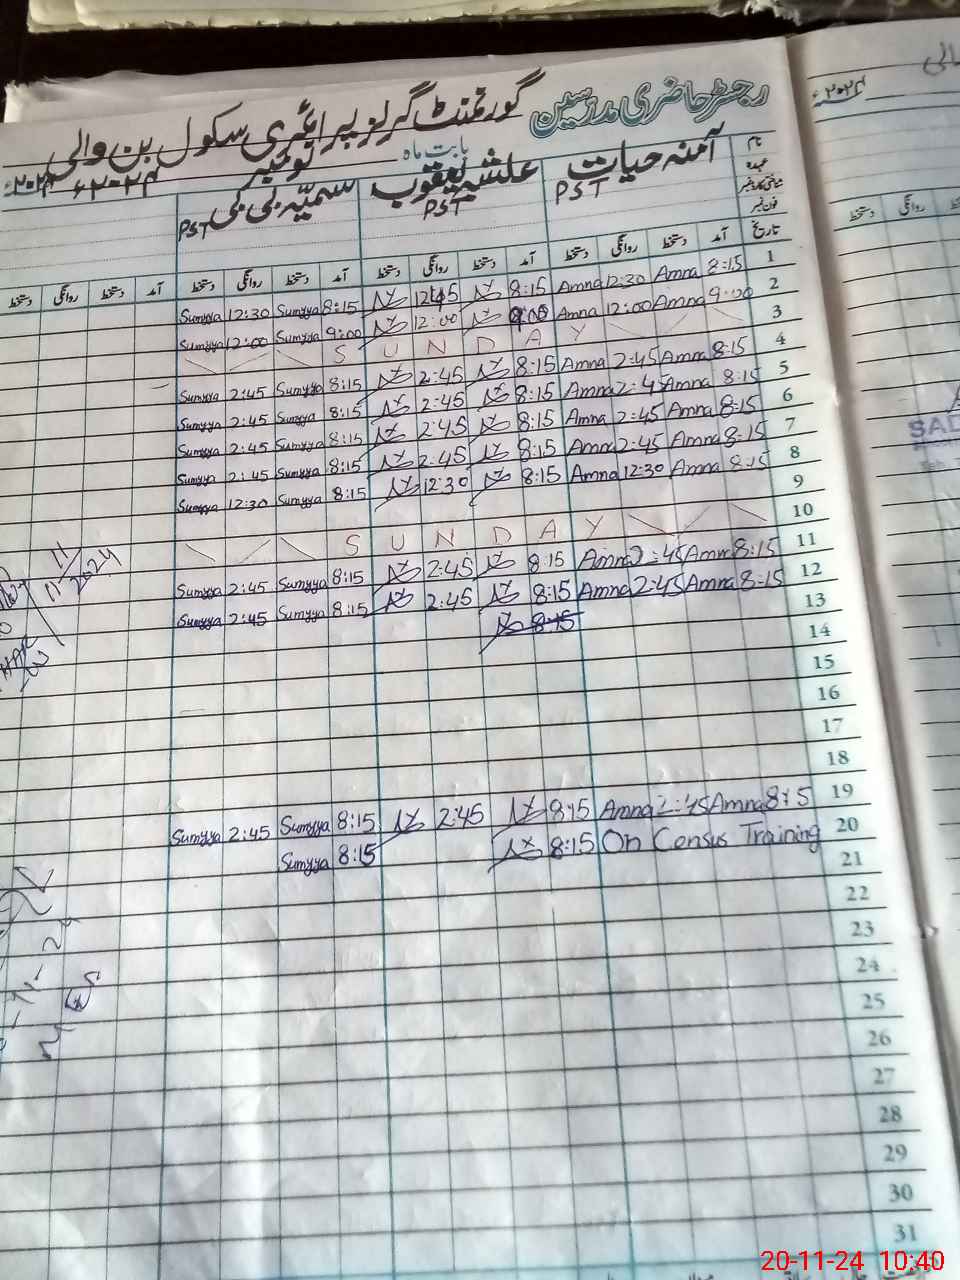 رجسٹر حاضری مدرسین گورنمنٹ گرلز پرائمری سکول بن والی
بابت ماہ نومبر ۲۰۲۴ء
نام آمنہ حیات علشبہ یعقوب سمیّہ بی بی
عہدہ PST PST PST
شناختی کارڈ نمبر
فون نمبر
تاریخ آمد دستخط روانگی دستخط آمد دستخط روانگی دستخط آمد دستخط روانگی دستخط آمد دستخط روانگی دستخط
1 8:15 Amna 12:30 Amna 8:15 8:15 Sumyya 12:30 Sumyya
2 9:00 Amna 12:00 Amna 9:00 12:00 9:00 Sumyya 12:00 Sumyya
3 SUNDAY
4 8:15 Amna 2:45 Amna 8:15 2:45 8:15 Sumyya 2:45 Sumyya
5 8:15 Amna 2:45 Amna 8:15 2:45 8:15 Sumyya 2:45 Sumyya
6 8:15 Amna 2:45 Amna 8:15 2:45 8:15 Sumyya 2:45 Sumyya
7 8:15 Amna 2:45 Amna 8:15 2:45 8:15 Sumyya 2:45 Sumyya
8 8:15 Amna 12:30 Amna 8:15 12:30 8:15 Sumyya 12:30 Sumyya
9
10 SUNDAY
11 8:15 Amna 2:45 Amna 8:15 2:45 8:15 Sumyya 2:45 Sumyya
12 8:15 Amna 2:45 Amna 8:15 2:45 8:15 Sumyya 2:45 Sumyya
13 8:15
14
15
16
17
18
19 8:15 Amna 2:45 Amna 8:15 2:45 8:15 Sumyya 2:45 Sumyya
20 On Census Training 8:15 8:15 Sumyya
21
22
23
24
25
26
27
28
29
30
31
11
11 2024
۲۰۲۴ء
دستخط روانگی
SAD
20-11-24 10:40